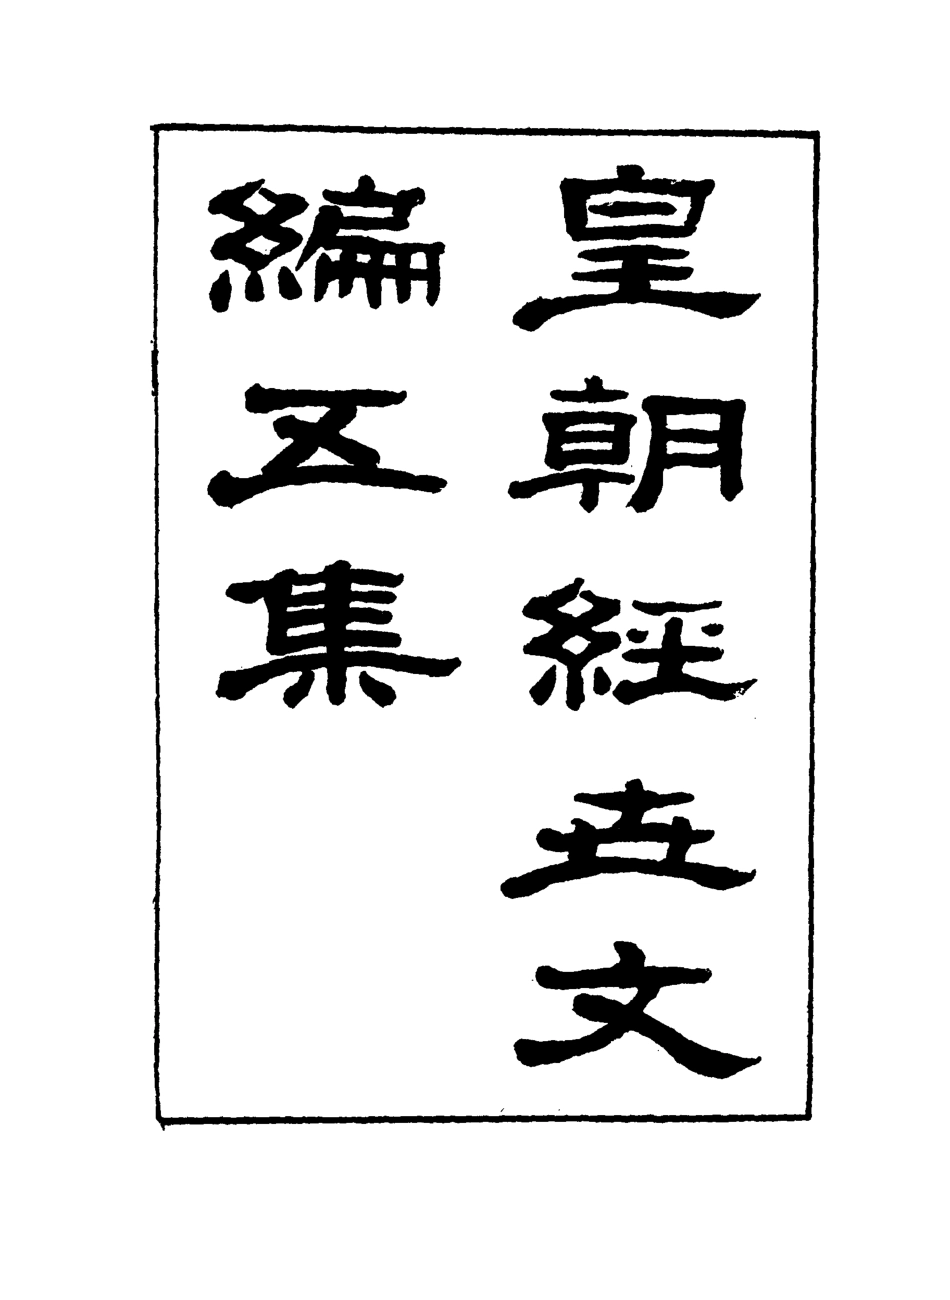 皇朝經世文
編五集